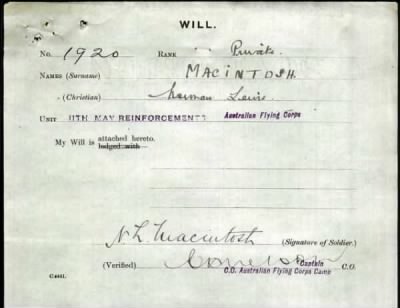 WILL.
No. 1920 RANK Private.
NAMES (Surname) MACINTOSH.
(Christian) Norman Lewis
UNIT 11TH MAY REINFORCEMENTS Australian Flying Corps
My Will is attached hereto.
lodged with
N L Macintosh (Signature of Soldier.)
(Verified) Captain C.O.
C.O. Australian Flying Corps Camp